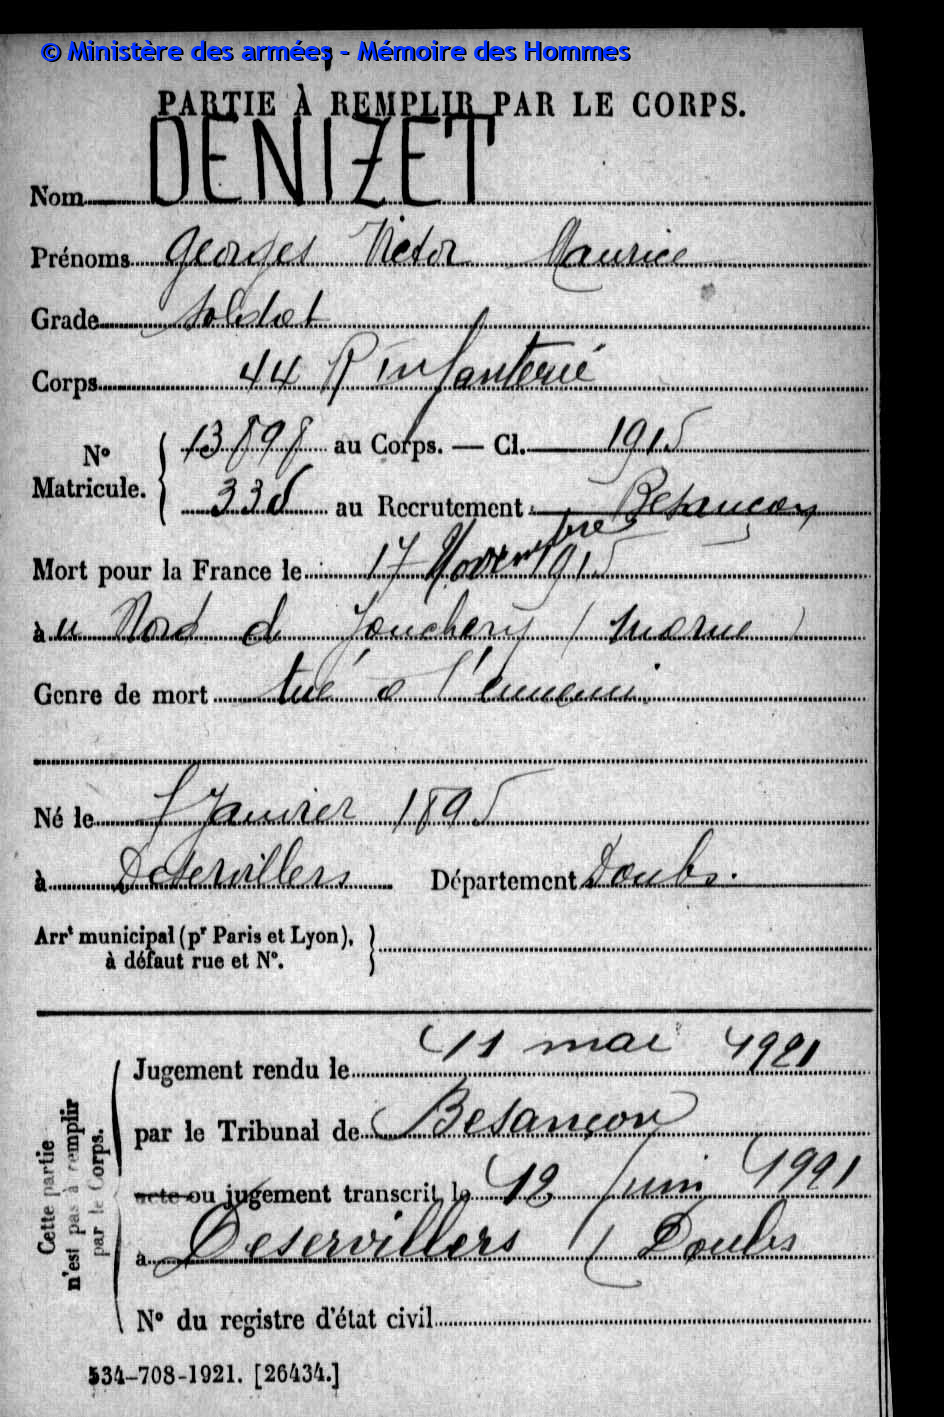 © Ministère des armées - Mémoire des Hommes
PARTIE À REMPLIR PAR LE CORPS.
Nom DENIZET
Prénoms Georges Victor Maurice
Grade Soldat
Corps 44 R Infanterie
N° Matricule. 13898 au Corps. — Cl. 1915
335 au Recrutement Besançon
Mort pour la France le 17 Novembre 1915
au Nord de Jonchery (Marne)
Genre de mort tué à l'ennemi
Né le Janvier 1895
à Deservillers Département Doubs.
Arrt municipal (pr Paris et Lyon),
à défaut rue et N°.
Cette partie n'est pas à remplir par le Corps.
Jugement rendu le 11 mai 1921
par le Tribunal de Besançon
acte ou jugement transcrit le 12 juin 1921
à Deservillers (Doubs
N° du registre d'état civil
534-708-1921. [26434.]